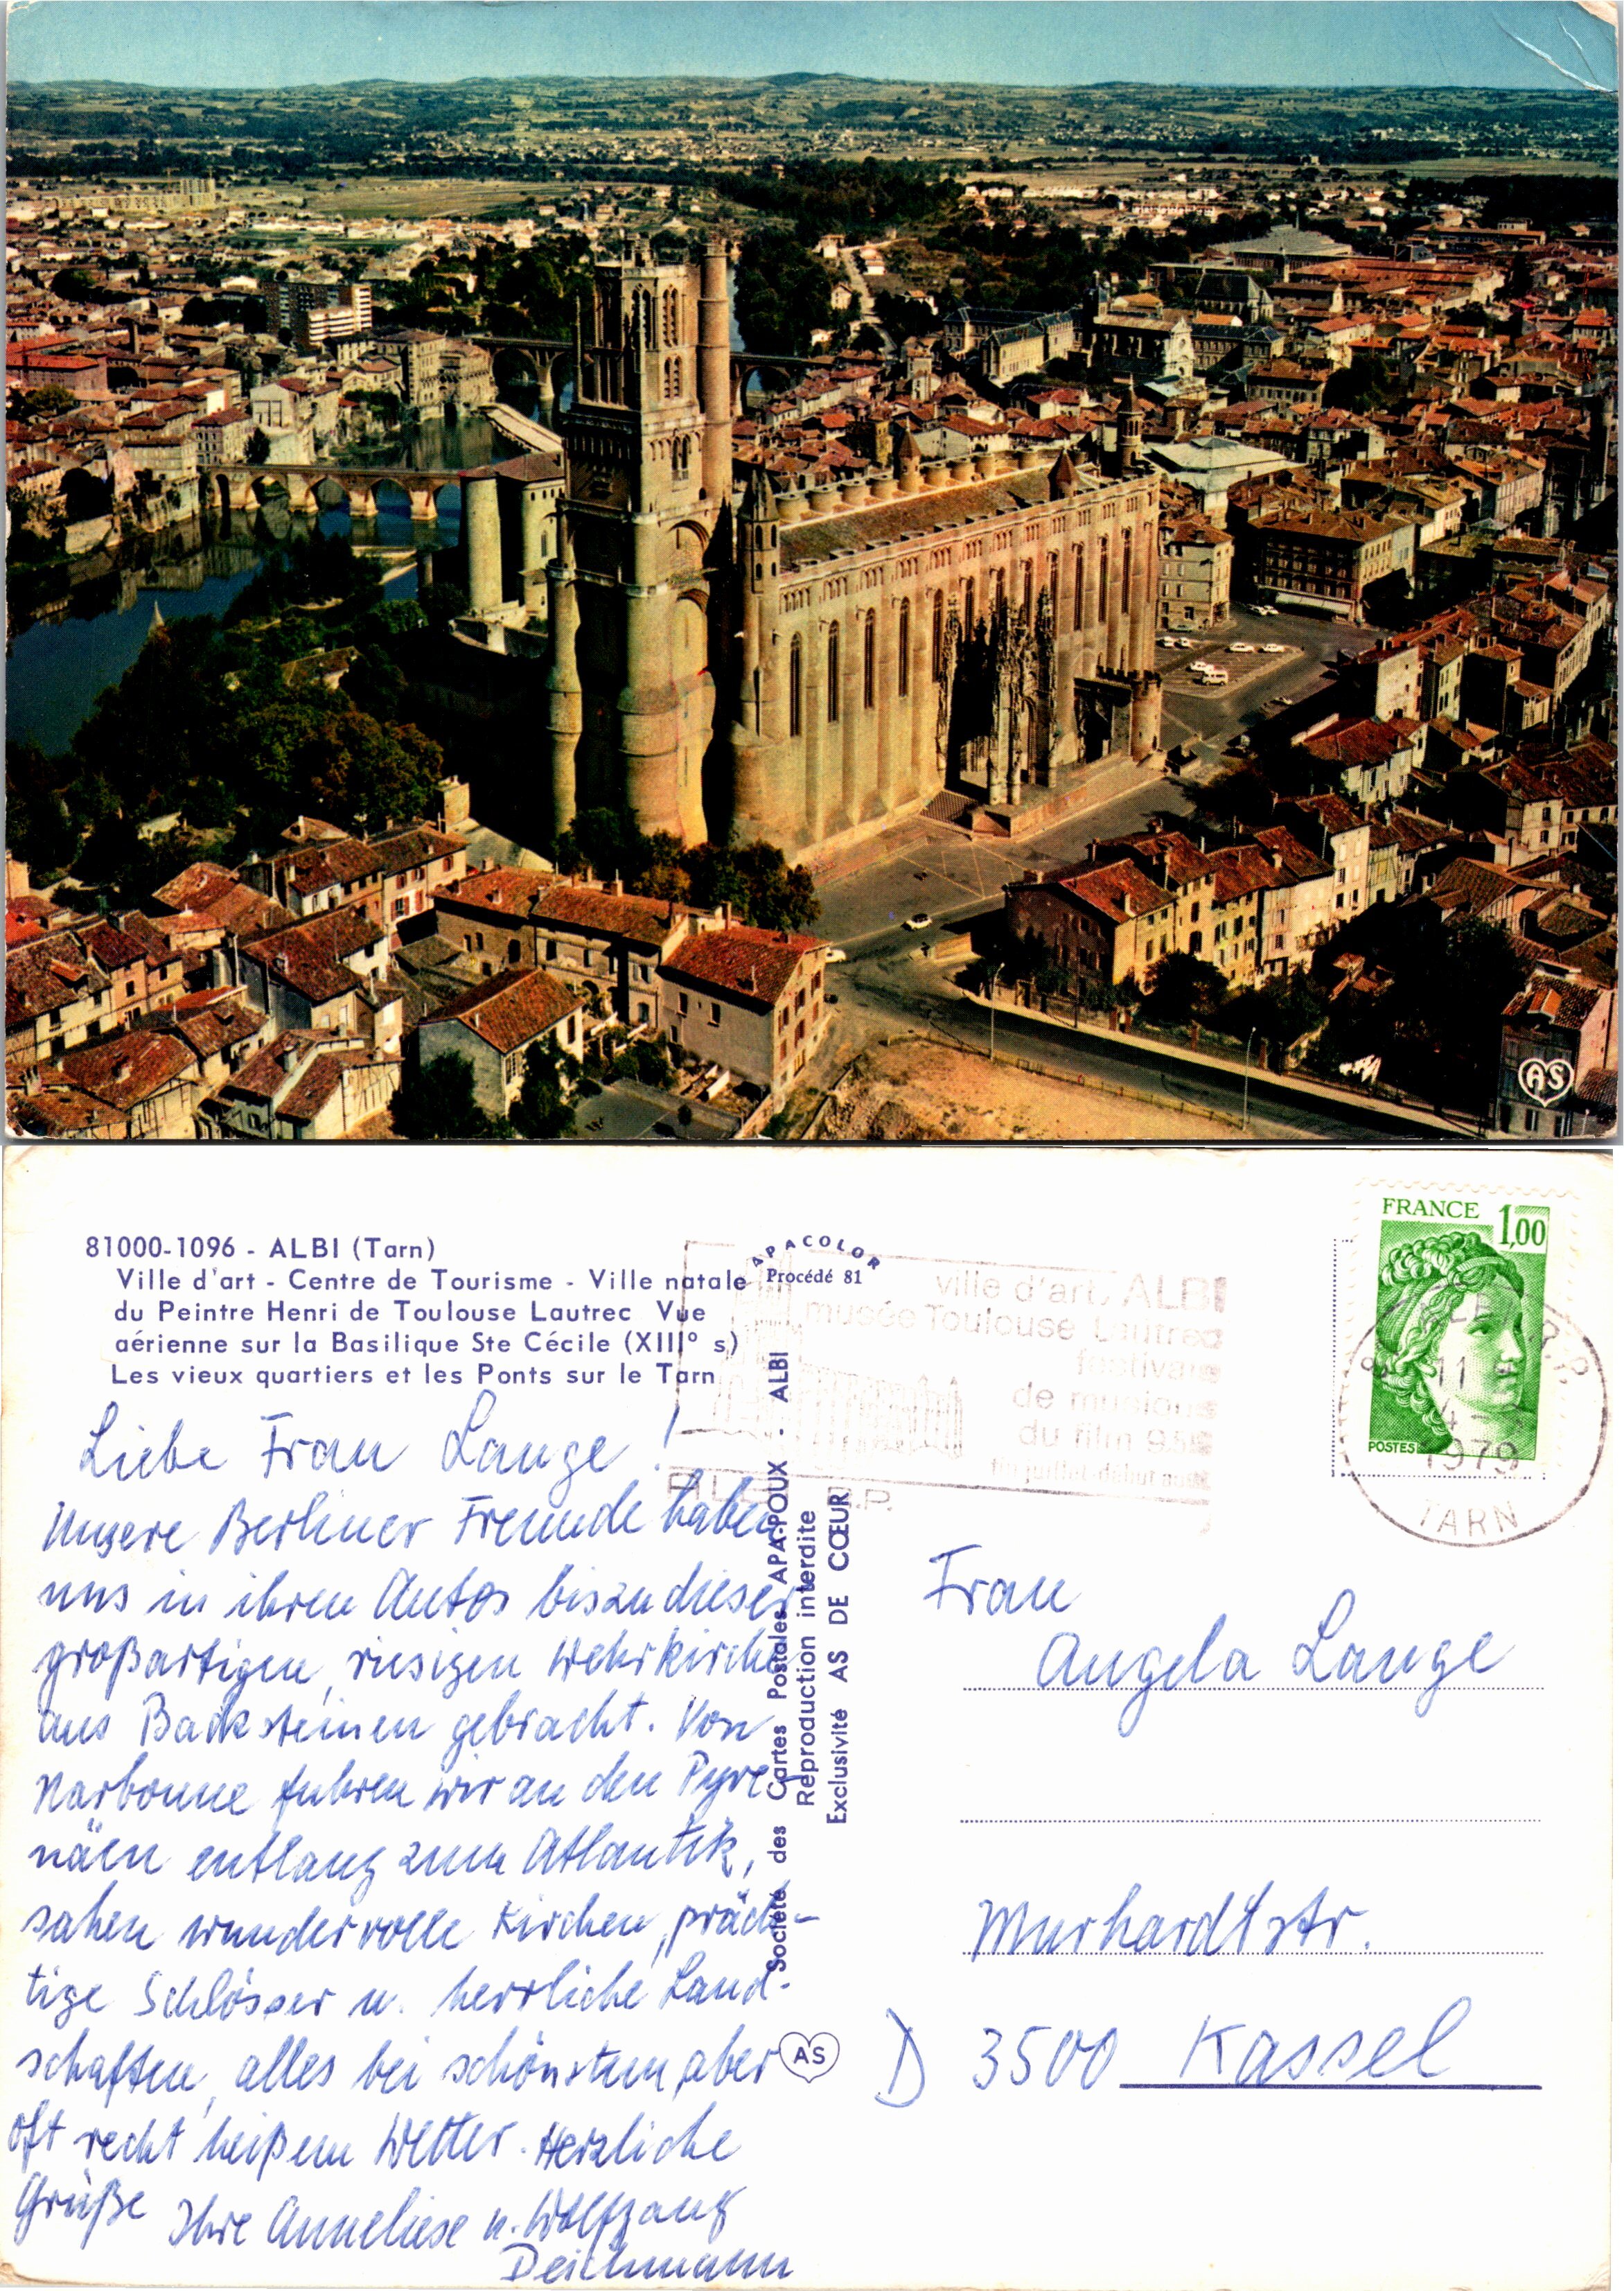 AS
81000-1096 - ALBI (Tarn)
Ville d'art - Centre de Tourisme - Ville natale
du Peintre Henri de Toulouse Lautrec Vue
aérienne sur la Basilique Ste Cécile (XIII° s)
Les vieux quartiers et les Ponts sur le Tarn
APACOLOR
Procédé 81
ville d'art, ALBI
musée Toulouse Lautrec
festivals
de musique
du film 9.5
FRANCE 1,00
POSTES
11
1979
TARN
Liebe Frau Lange!
Unsere Berliner Freunde haben
uns in ihren Autos bis zu dieser
großartigen, riesigen Wehrkirche
aus Backsteinen gebracht. Von
Narbonne fuhren wir an den Pyre-
näen entlang zum Atlantik,
sahen wundervolle Kirchen, präch-
tige Schlösser u. herrliche Land-
schaften, alles bei schönstem, aber
oft recht heißem Wetter. Herzliche
Grüße Ihre Anneliese u. Wolfgang
Deichmann
Société des Cartes Postales APA-POUX - ALBI
Reproduction interdite
Exclusivité AS DE CŒUR
AS
Frau
Angela Lange
Murhardtstr.
D 3500 Kassel